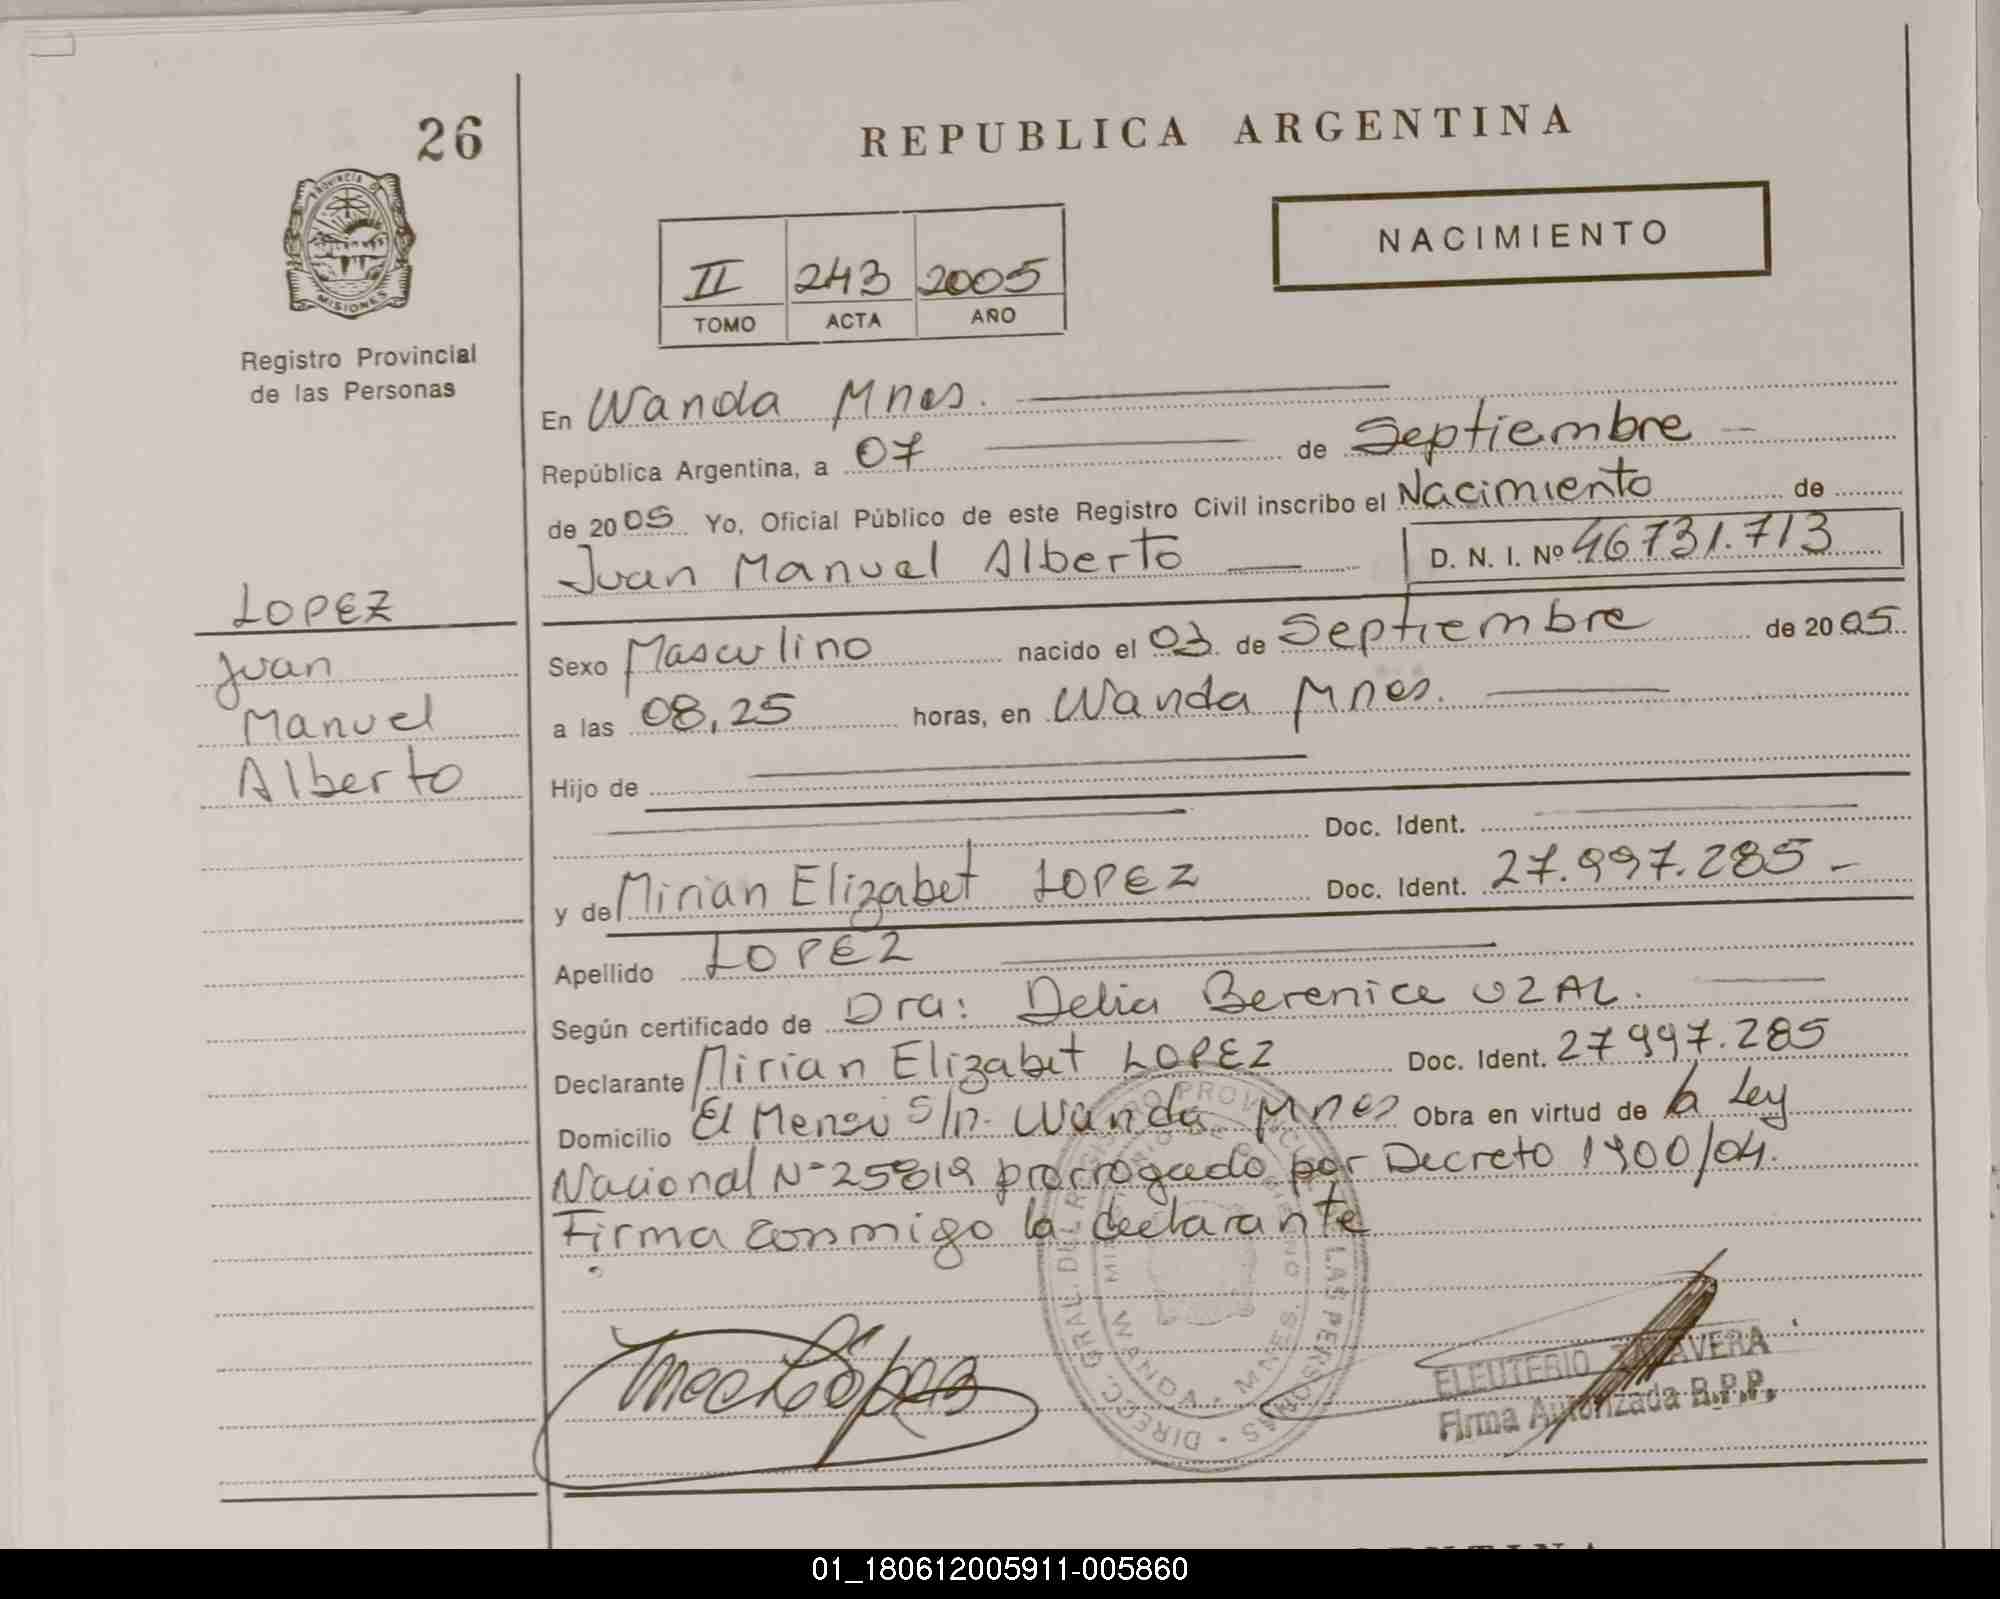 26
REPUBLICA ARGENTINA
PROVINCIA D MISIONES
NACIMIENTO
II 243 2005
TOMO ACTA AÑO
Registro Provincial
de las Personas
En Wanda Mnes.
República Argentina, a 07 de Septiembre
de 2005 Yo, Oficial Público de este Registro Civil inscribo el Nacimiento de
Juan Manuel Alberto D. N. I. Nº 46731.713
LOPEZ
Juan
Manuel
Alberto
Sexo Masculino nacido el 03 de Septiembre de 2005
a las 08,25 horas, en Wanda Mnes.
Hijo de
Doc. Ident.
y de Mirian Elizabet LOPEZ Doc. Ident. 27.997.285 -
Apellido LOPEZ
Según certificado de Dra: Delia Berenice UZAL.
Declarante Mirian Elizabet LOPEZ Doc. Ident. 27997.285
Domicilio El Mensú S/n. Wanda Mnes Obra en virtud de la Ley
Nacional Nº 25819 prorrogado por Decreto 1900/04.
Firma conmigo la declarante
López
DIRECC. GRAL. DEL REGISTRO PROVINCIAL DE LAS PERSONAS
MINISTERIO DE GOBIERNO
WANDA • MNES.
ELEUTERIO TALAVERA
Firma Autorizada R.P.P.
01_180612005911-005860